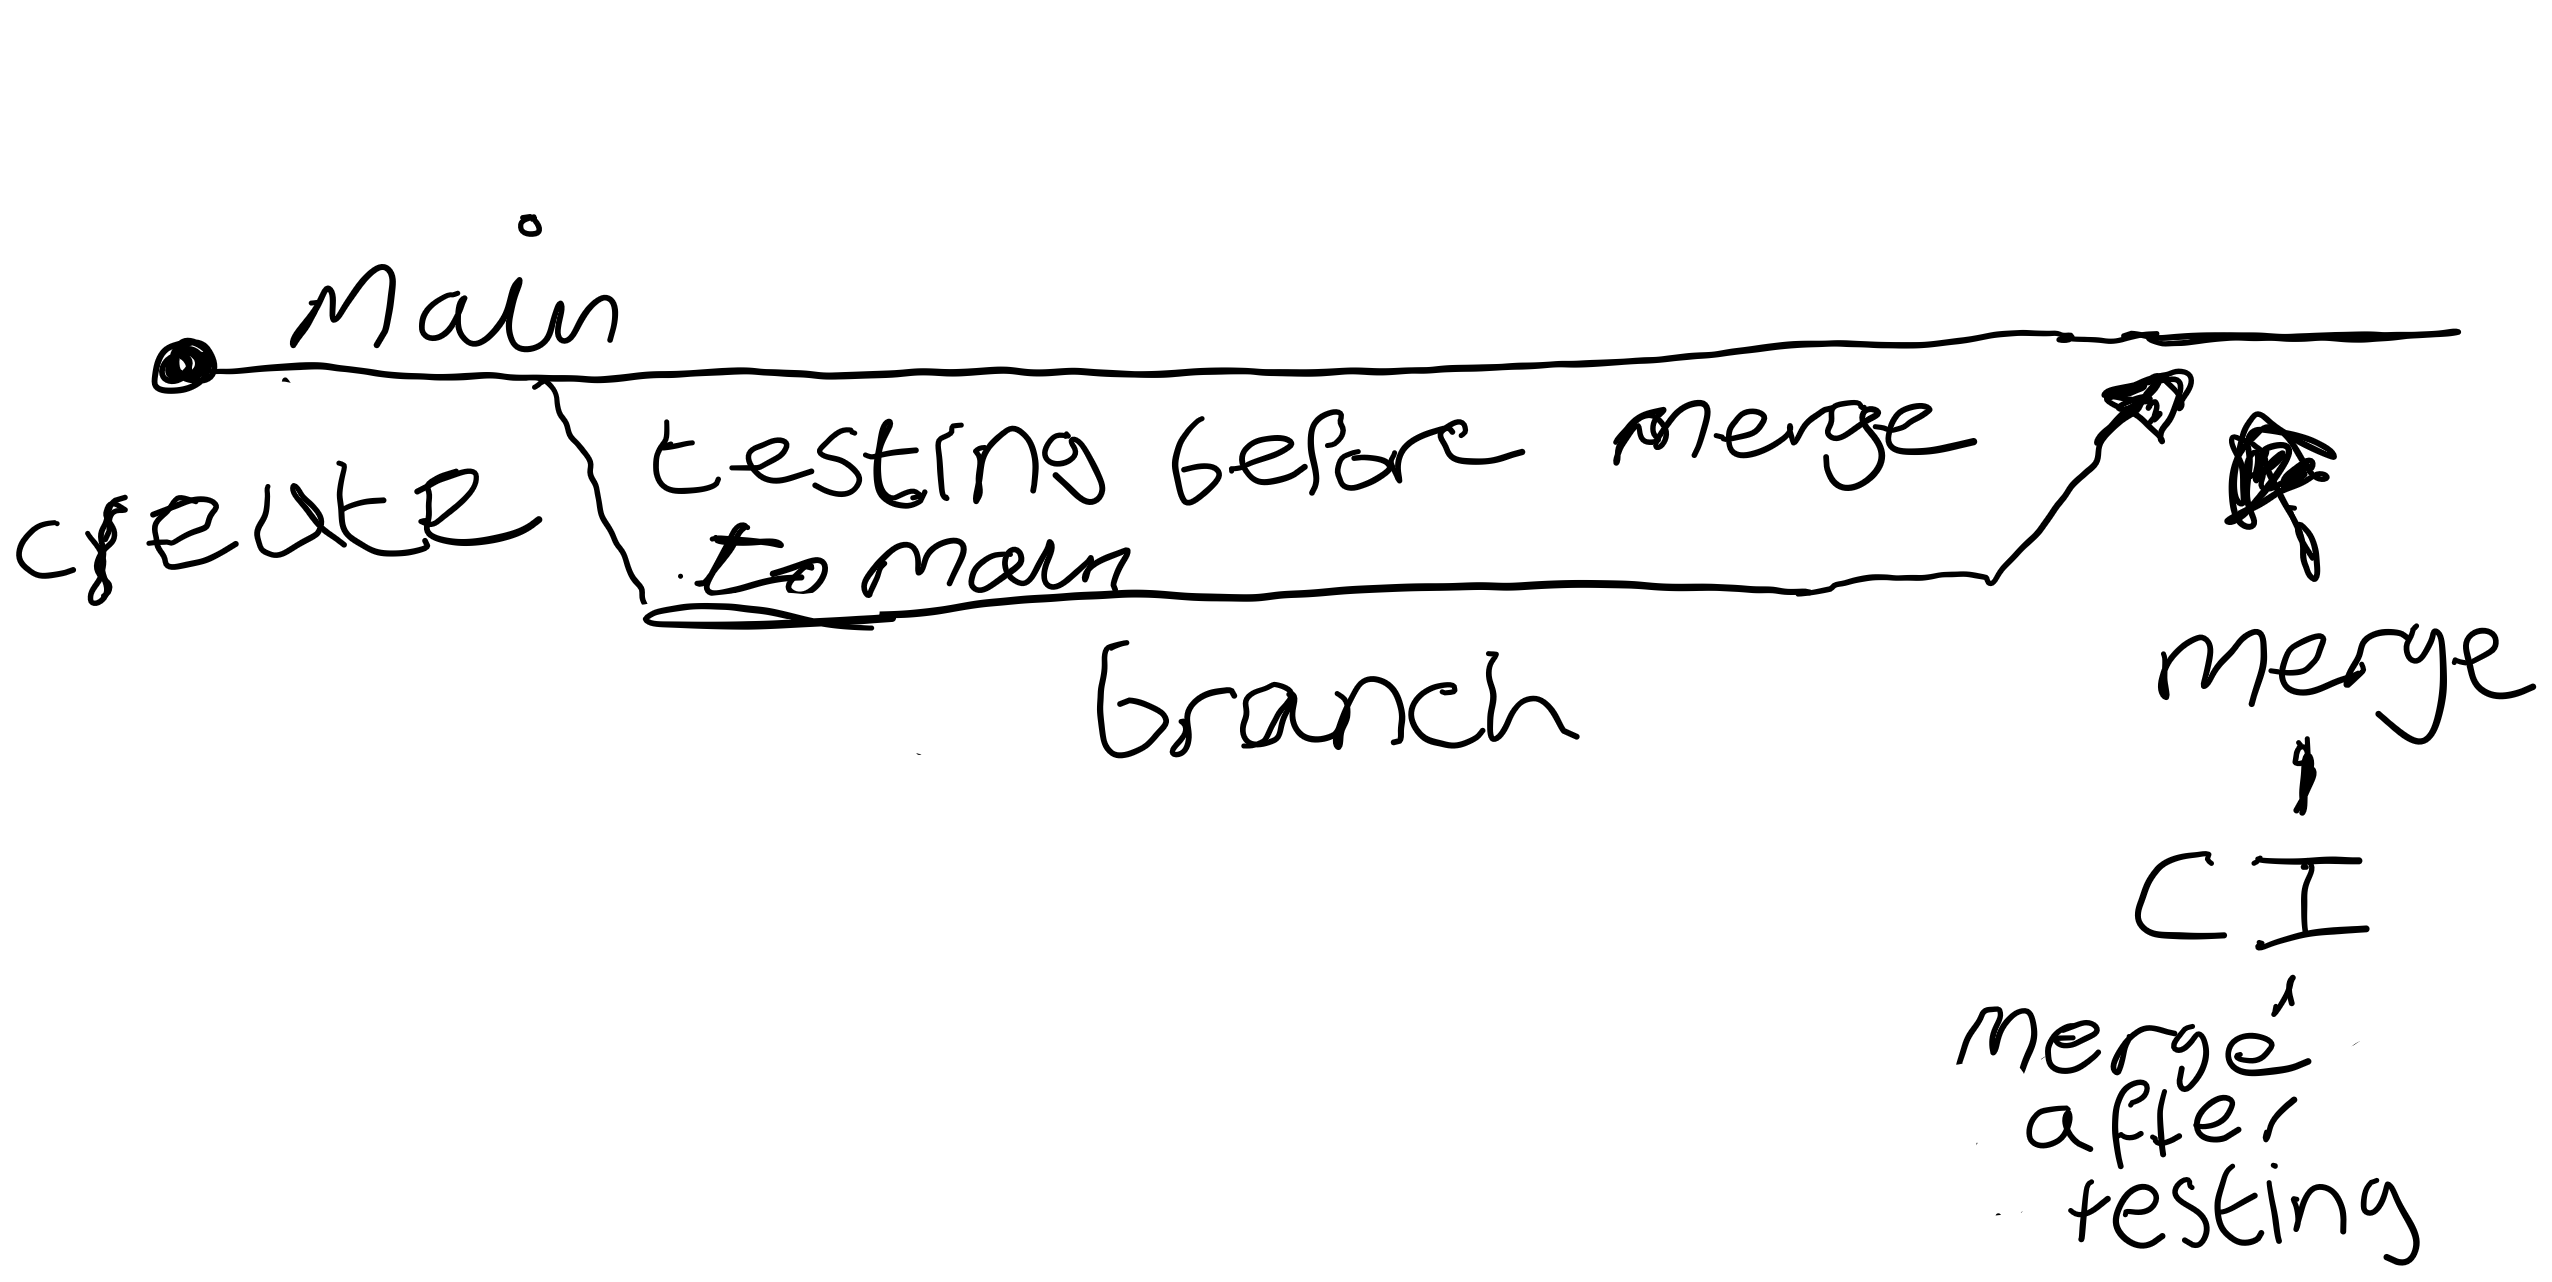 Main
create
testing before merge
to main
branch
merge
CI
merge
after
testing